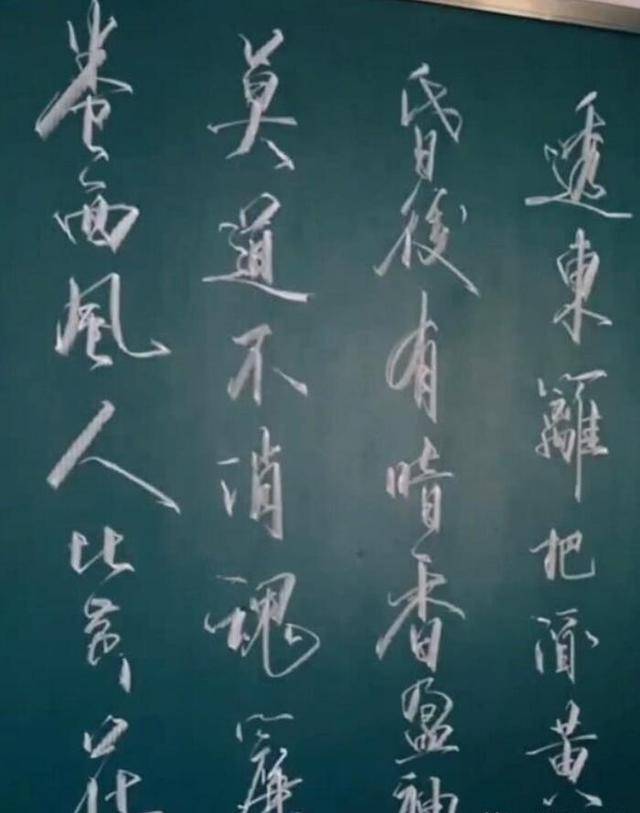 透東籬把酒黃
昏後有暗香盈袖
莫道不消魂簾
卷西風人比